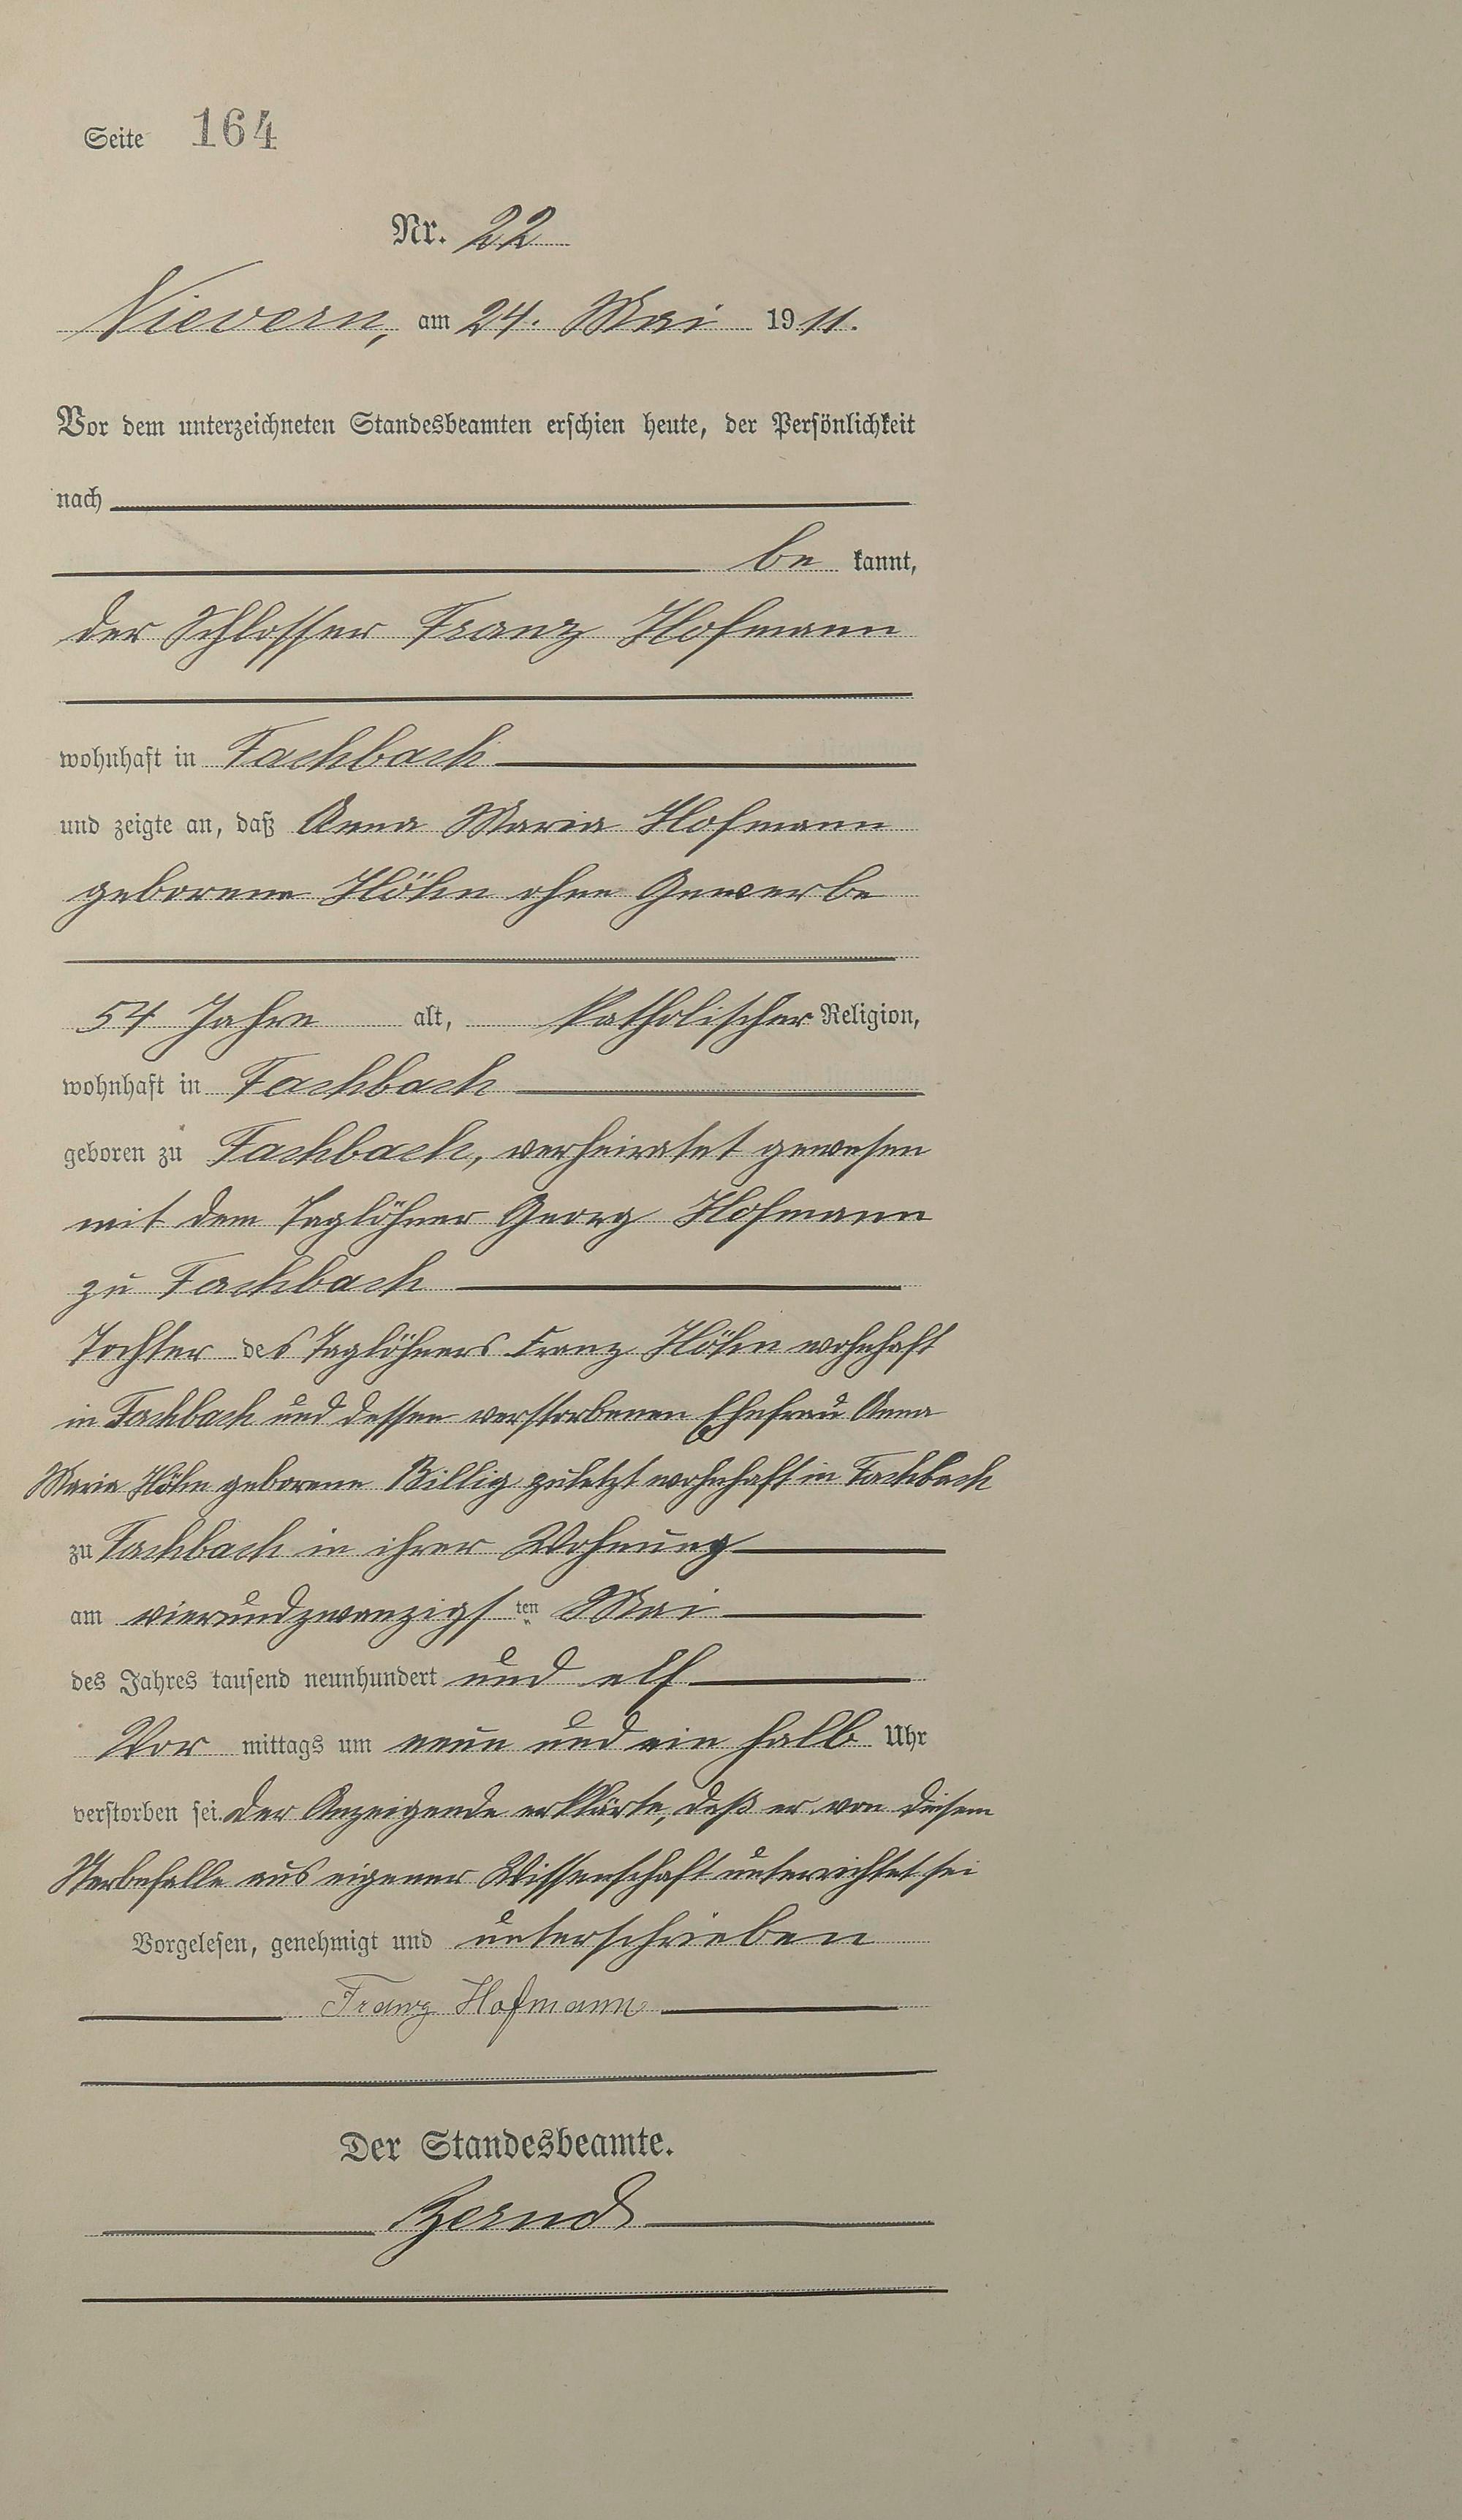 Seite 164
Nr. 22
Nievern, am 24. Mai 1911.
Vor dem unterzeichneten Standesbeamten erschien heute, der Persönlichkeit
nach
be kannt,
der Schlosser Franz Hofmann
wohnhaft in Fachbach
und zeigte an, daß Anna Maria Hofmann
geborene Höhn ohne Gewerbe
54 Jahre alt, katholischer Religion,
wohnhaft in Fachbach
geboren zu Fachbach, verheiratet gewesen
mit dem Taglöhner Georg Hofmann
zu Fachbach
Tochter des Taglöhners Franz Höhn wohnhaft
in Fachbach und dessen verstorbenen Ehefrau Anna
Maria Höhn geborene Billig zuletzt wohnhaft in Fachbach
zu Fachbach in ihrer Wohnung
am vierundzwanzigsten Mai
des Jahres tausend neunhundert und elf
Vor mittags um neun und ein halb Uhr
verstorben sei. Der Anzeigende erklärte, daß er von diesem
Sterbefalle aus eigener Wissenschaft unterrichtet sei
Vorgelesen, genehmigt und unterschrieben
Franz Hofmann
Der Standesbeamte.